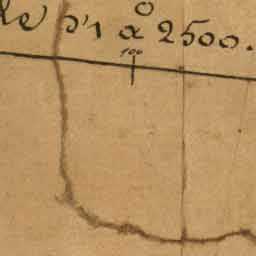 de 1 à 2500.
100